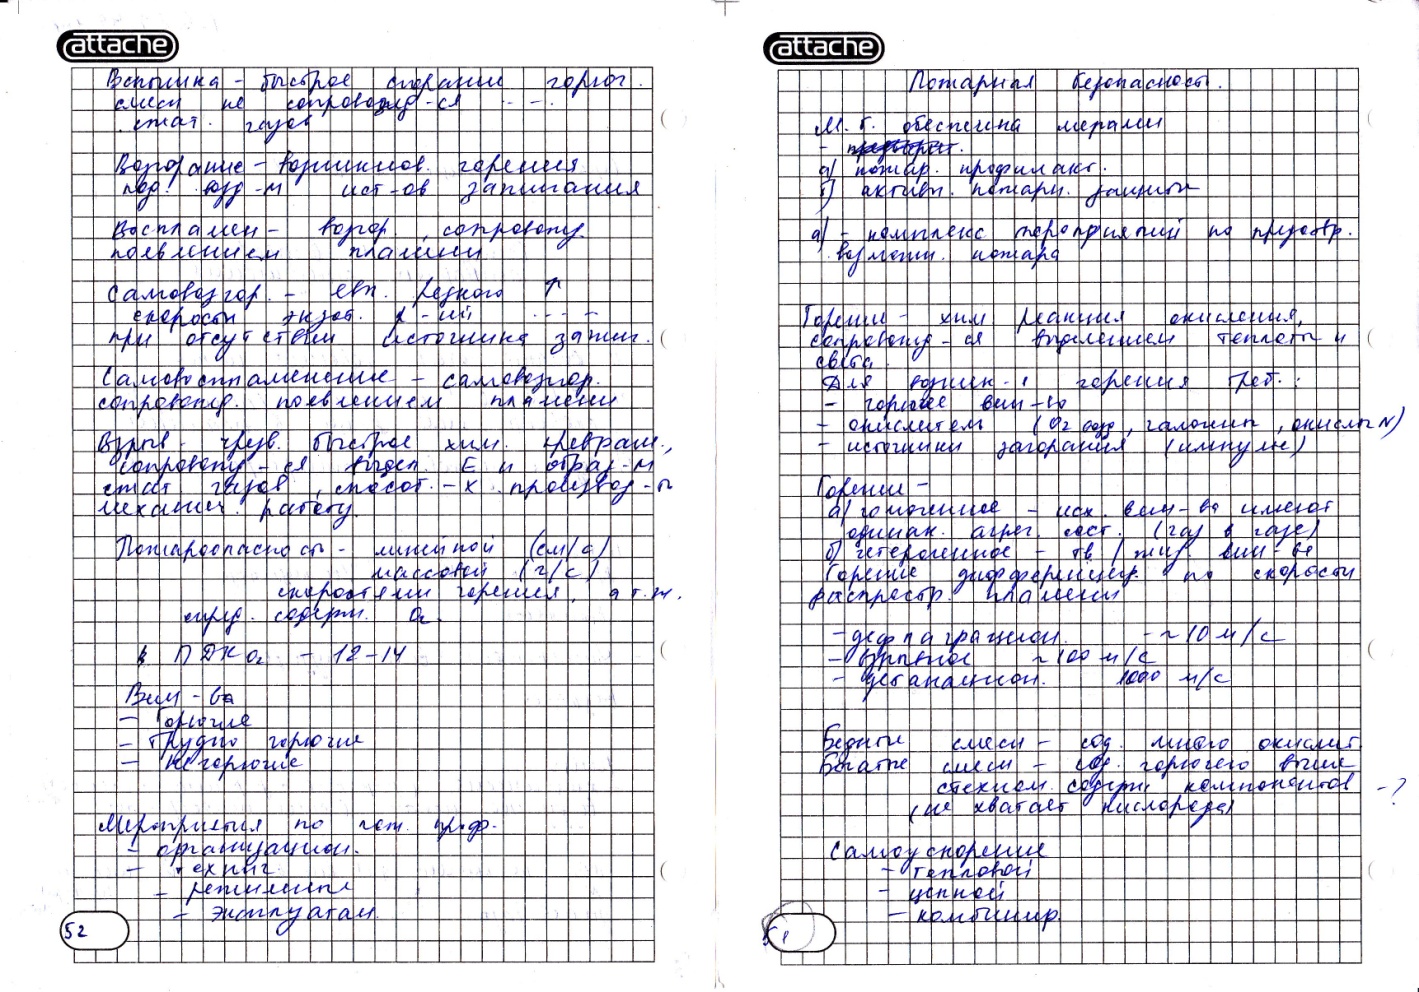 attache
Вспышка - быстрое сгорание горюч.
смеси не сопровожд-ся - - - .
сжат. газов
Возгорание - возникнов. горения
под возд-м ист-ов зажигания
Воспламен - возгор., сопровожд.
появлением пламени
Самовозгор. - явл. резкого ↑
скорости экзот. р-ий - - - -
при отсутствии источника зажиг.
Самовоспламенение - самовозгор.
сопровожд. появлением пламени
Взрыв - чрезв. быстрое хим. превращ.,
сопровожд-ся выдел. Е и образ-м
сжат газов, способ-х производ-ть
механич. работу.
Пожароопасность - линейной (см/с)
массовой (г/с)
скоростями горения, а т.ж.
пред. содерж. O₂
ПДК O₂ - 12-14
Вещ-ва
- Горючие
- Трудно горючие
- Негорючие
Мероприятия по пож. проф.
- организацион.
- технич.
- режимные
- эксплуатац.
52
attache
Пожарная безопасность.
М. б. обеспечена мерами
а) пожар. профилакт.
б) активн. пожарн. защиты
а) - комплекс мероприятий по предотвр.
возможн. пожара
Горение - хим реакция окисления,
сопровожд-ся выделением теплоты и
света
Для возник-я горения треб.:
- горючее вещ-во
- окислитель (O₂ возд, галогены, окислы N)
- источники загорания (импульс)
Горение -
а) гомогенное - исх. вещ-ва имеют
одинак. агрег. сост. (газ в газе)
б) гетерогенное - тв / жид. вещ-ва
Горение дифференцир. по скорости
распростр. пламени
- дефлаграцион. - ~ 10 м/с
- взрывное ~ 100 м/с
- детанацион. 1000 м/с
Бедные смеси - сод. много окислит.
Богатые смеси - сод. горючего выше
стехиом. содерж. компонентов - ?
(не хватает кислорода)
Самоускорение
- тепловой
- цепной
- комбинир.
51